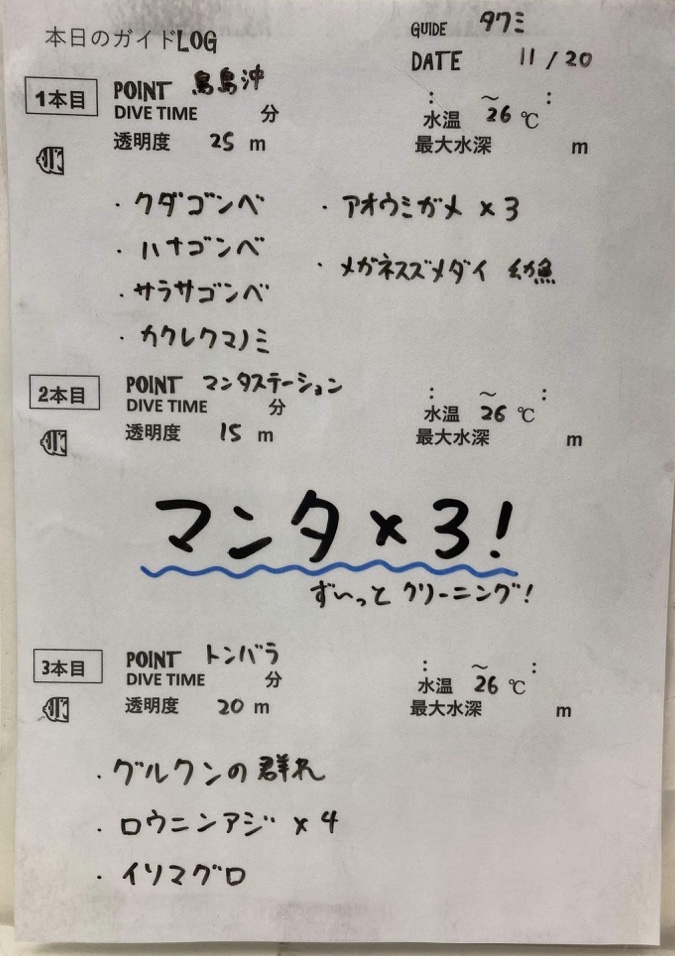 本日のガイドLOG
GUIDE タクミ
DATE 11 / 20
1本目 POINT 鳥島沖
DIVE TIME 分 : ～ :
水温 26 ℃
透明度 25 m
最大水深 m
・クダゴンベ
・アオウミガメ ×3
・ハナゴンベ
・メガネスズメダイ 幼魚
・サラサゴンベ
・カクレクマノミ
2本目 POINT マンタステーション
DIVE TIME 分 : ～ :
水温 26 ℃
透明度 15 m
最大水深 m
マンタ×3!
ずいっと クリーニング!
3本目 POINT トンバラ
DIVE TIME 分 : ～ :
水温 26 ℃
透明度 20 m
最大水深 m
・グルクンの群れ
・ロウニンアジ ×4
・イソマグロ